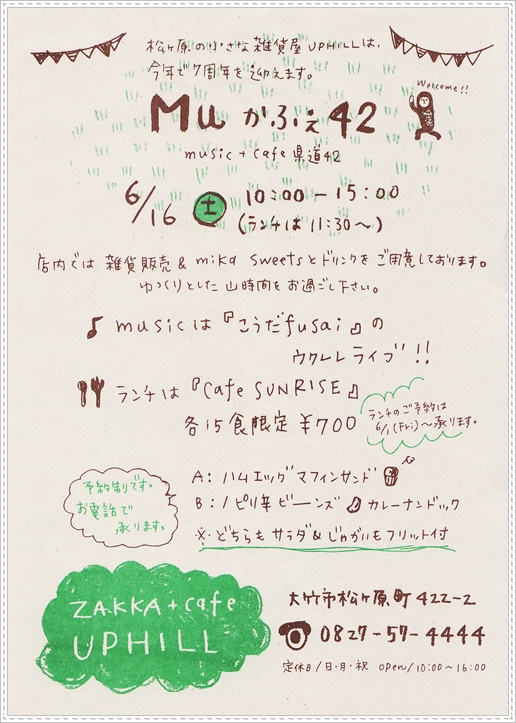 松ヶ原の小さな雑貨屋UPHILLは、
今年で7周年を迎えます。
Welcome!!
Mu かふぇ 42
music + cafe 県道42
6/16 土 10:00 — 15:00
(ランチは 11:30〜)
店内では 雑貨販売 & mika sweetsとドリンクをご用意しております。
ゆっくりとした山時間をお過ごし下さい。
musicは『こうだfusai』の
ウクレレライブ!!
ランチは『Cafe SUNRISE』
各15食限定 ¥700
ランチのご予約は
6/1(Fri)〜承ります。
A: ハムエッグマフィンサンド
B: ピリ辛ビーンズカレーナンドック
※どちらもサラダ&じゃがいもフリット付
予約制です。
お電話で
承ります。
ZAKKA + cafe
UPHILL
大竹市松ヶ原町422-2
0827-57-4444
定休日/日・月・祝 open/10:00〜16:00